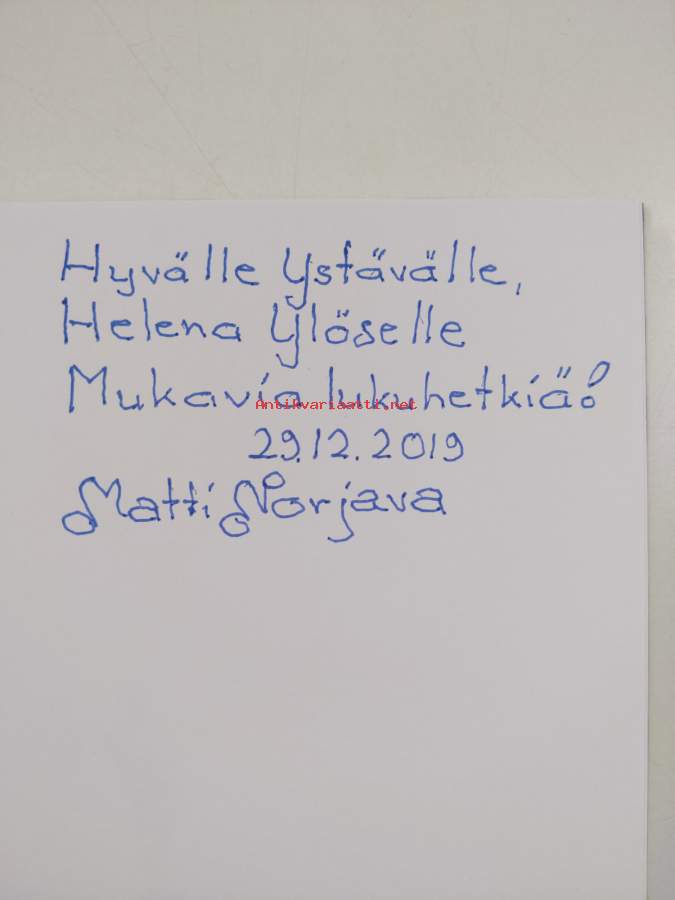 Hyvälle Ystävälle,
Helena Ylöselle
Mukavia lukuhetkiä!
Antikvariaatti.net
29.12.2019
Matti Norjava